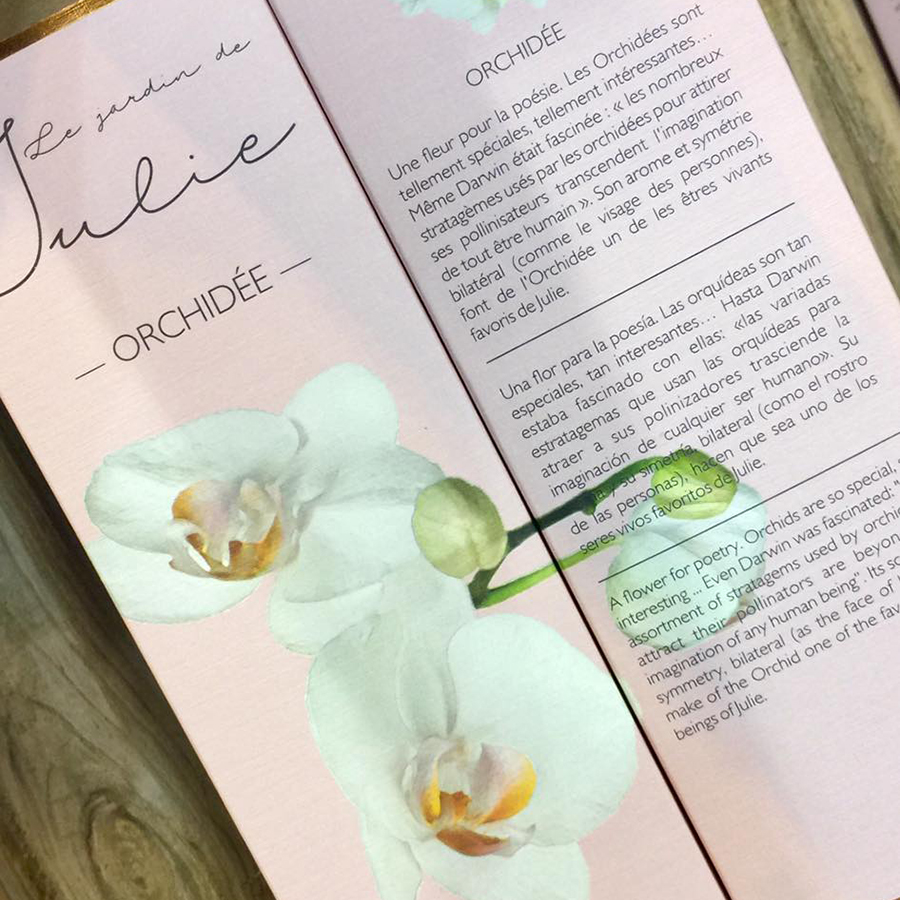 Le jardin de
Julie
— ORCHIDÉE —
ORCHIDÉE
Une fleur pour la poésie. Les Orchidées sont
tellement spéciales, tellement intéressantes…
Même Darwin était fascinée : « les nombreux
stratagèmes usés par les orchidées pour attirer
ses pollinisateurs transcendent l'imagination
de tout être humain ». Son arome et symétrie
bilatéral (comme le visage des personnes),
font de l'Orchidée un de les êtres vivants
favoris de Julie.
Una flor para la poesía. Las orquídeas son tan
especiales, tan interesantes… Hasta Darwin
estaba fascinado con ellas: «las variadas
estratagemas que usan las orquídeas para
atraer a sus polinizadores trasciende la
imaginación de cualquier ser humano». Su
y su simetría bilateral (como el rostro
de las personas), hacen que sea uno de los
seres vivos favoritos de Julie.
A flower for poetry. Orchids are so special,
interesting ... Even Darwin was fascinated: "
assortment of stratagems used by
attract their pollinators are
imagination of any human being'. Its
symmetry, bilateral (as the face of
make of the Orchid one of the
beings of Julie.